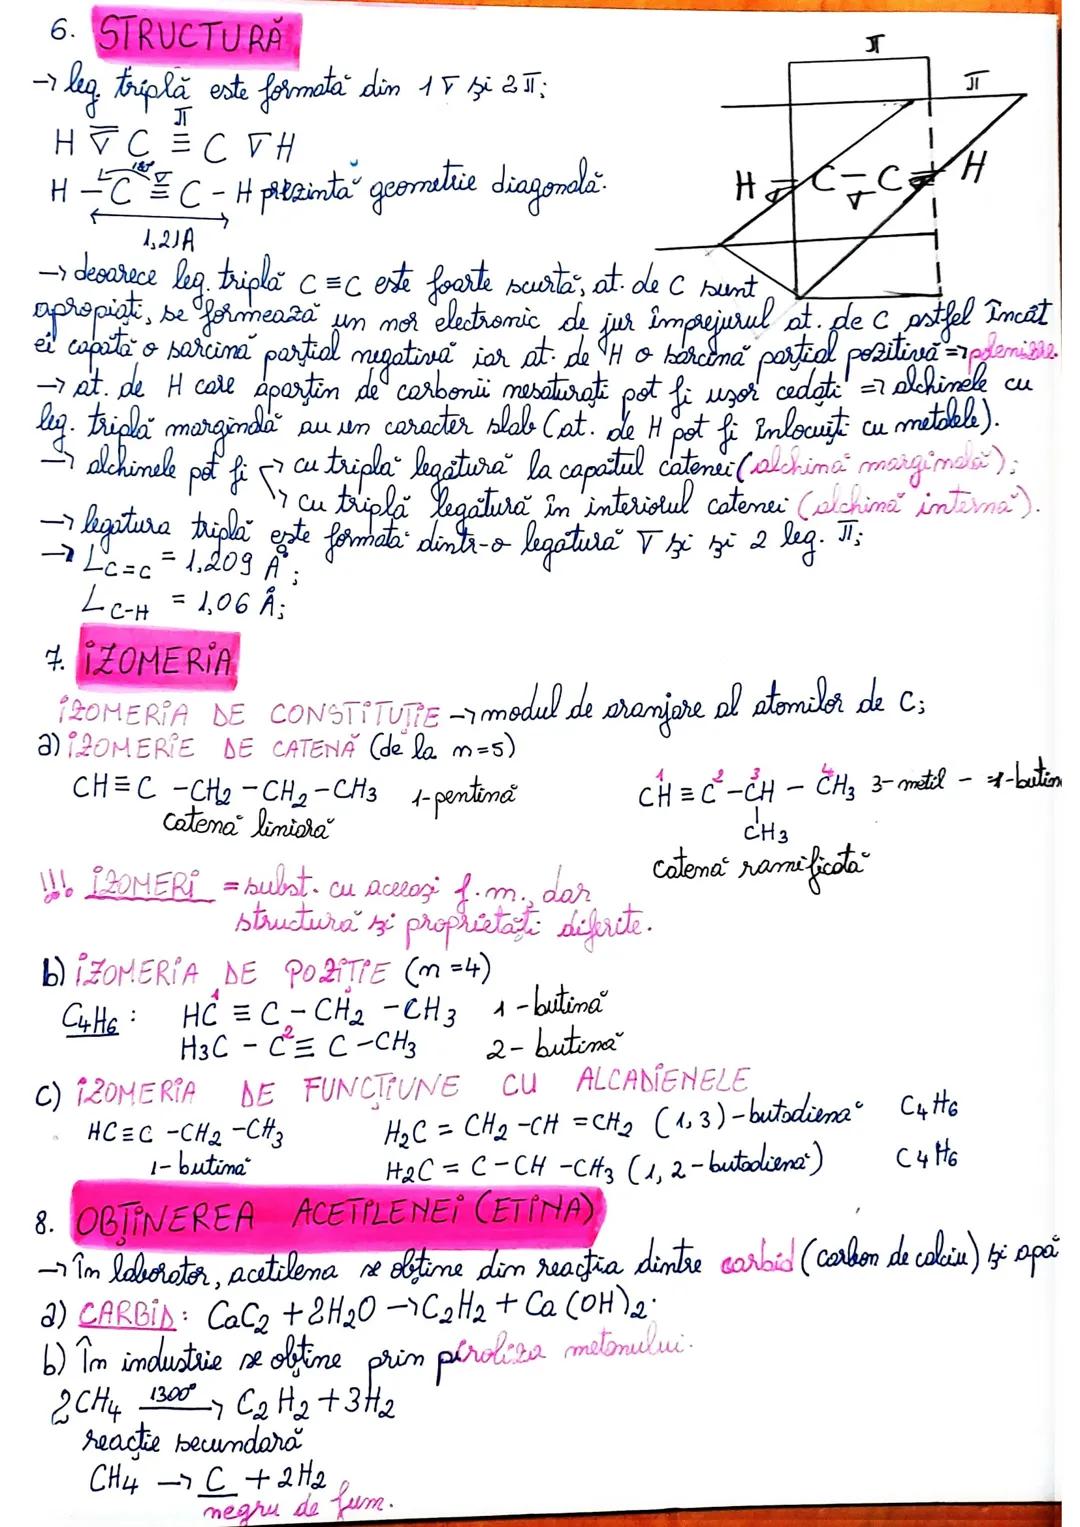 6. STRUCTURĂ
→ leg. triplă este formată din 1 σ și 2 π;
π
H σ C ≡ C σ H
180° σ
H - C ≡ C - H prezintă geometrie diagonală.
1,21A
π
π
H σ C - C σ H
σ
→ deoarece leg. triplă C≡C este foarte scurtă, at. de C sunt
apropiați, se formează un nor electronic de jur împrejurul at. de C astfel încât
ei capătă o sarcină parțial negativă iar at. de H o sarcină parțial pozitivă =>
→ at. de H care aparțin de carbonii nesaturați pot fi ușor cedați => alchinele cu
leg. triplă marginală au un caracter slab (at. de H pot fi înlocuiți cu metalele).
→ alchinele pot fi → cu triplă legătură la capătul catenei (alchină marginală);
→ cu triplă legătură în interiorul catenei (alchină internă).
→ legătura triplă este formată dintr-o legătură σ și și 2 leg. π;
→ L C=C = 1,209 Å;
L C-H = 1,06 Å;
7. IZOMERIA
IZOMERIA DE CONSTITUȚIE → modul de aranjare al atomilor de C;
a) IZOMERIE DE CATENĂ (de la n=5)
CH≡C -CH2 -CH2 -CH3 1-pentină
catenă liniară
1 2 3 4
CH ≡ C - CH - CH3 3-metil - 1-butin
CH3
catenă ramificată
!!! IZOMERI = subst. cu aceeași f.m., dar
structură și proprietăți diferite.
b) IZOMERIA DE POZIȚIE (n=4)
C4H6 : HC1 ≡ C - CH2 - CH3 1-butină
H3C - C2 ≡ C - CH3 2-butină
c) IZOMERIA DE FUNCȚIUNE CU ALCADIENELE
HC≡C -CH2 -CH3 H2C = CH2 -CH =CH2 (1,3)-butadiena C4H6
1-butină H2C = C - CH -CH3 (1,2-butadienă) C4H6
8. OBȚINEREA ACETILENEI (ETINA)
→ În laborator, acetilena se obține din reacția dintre carbid (carbon de calciu) și apă
a) CARBID: CaC2 + 2H2O → C2H2 + Ca(OH)2.
b) În industrie se obține prin piroliza metanului.
2CH4 1300° → C2H2 + 3H2
reacție secundară
CH4 → C + 2H2
negru de fum.